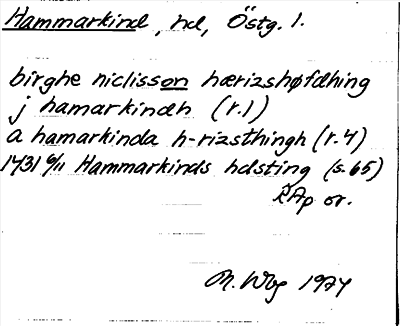 Hammarkind, hd, Östg. l.
birghe niclisson hærizshøfdhing
j hamarkindh (r.1)
a hamarkinda h-rizsthingh (r.4)
1431 6/11 Hammarkinds hdsting (s.65)
RAp or.
M. Wbg 1974